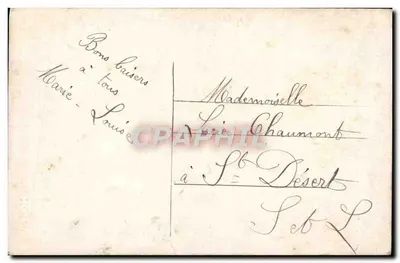 Bons baisers
à tous
Marie-Louise
Mademoiselle
Chaumont
à St Désert
S et L
CPAPHIL